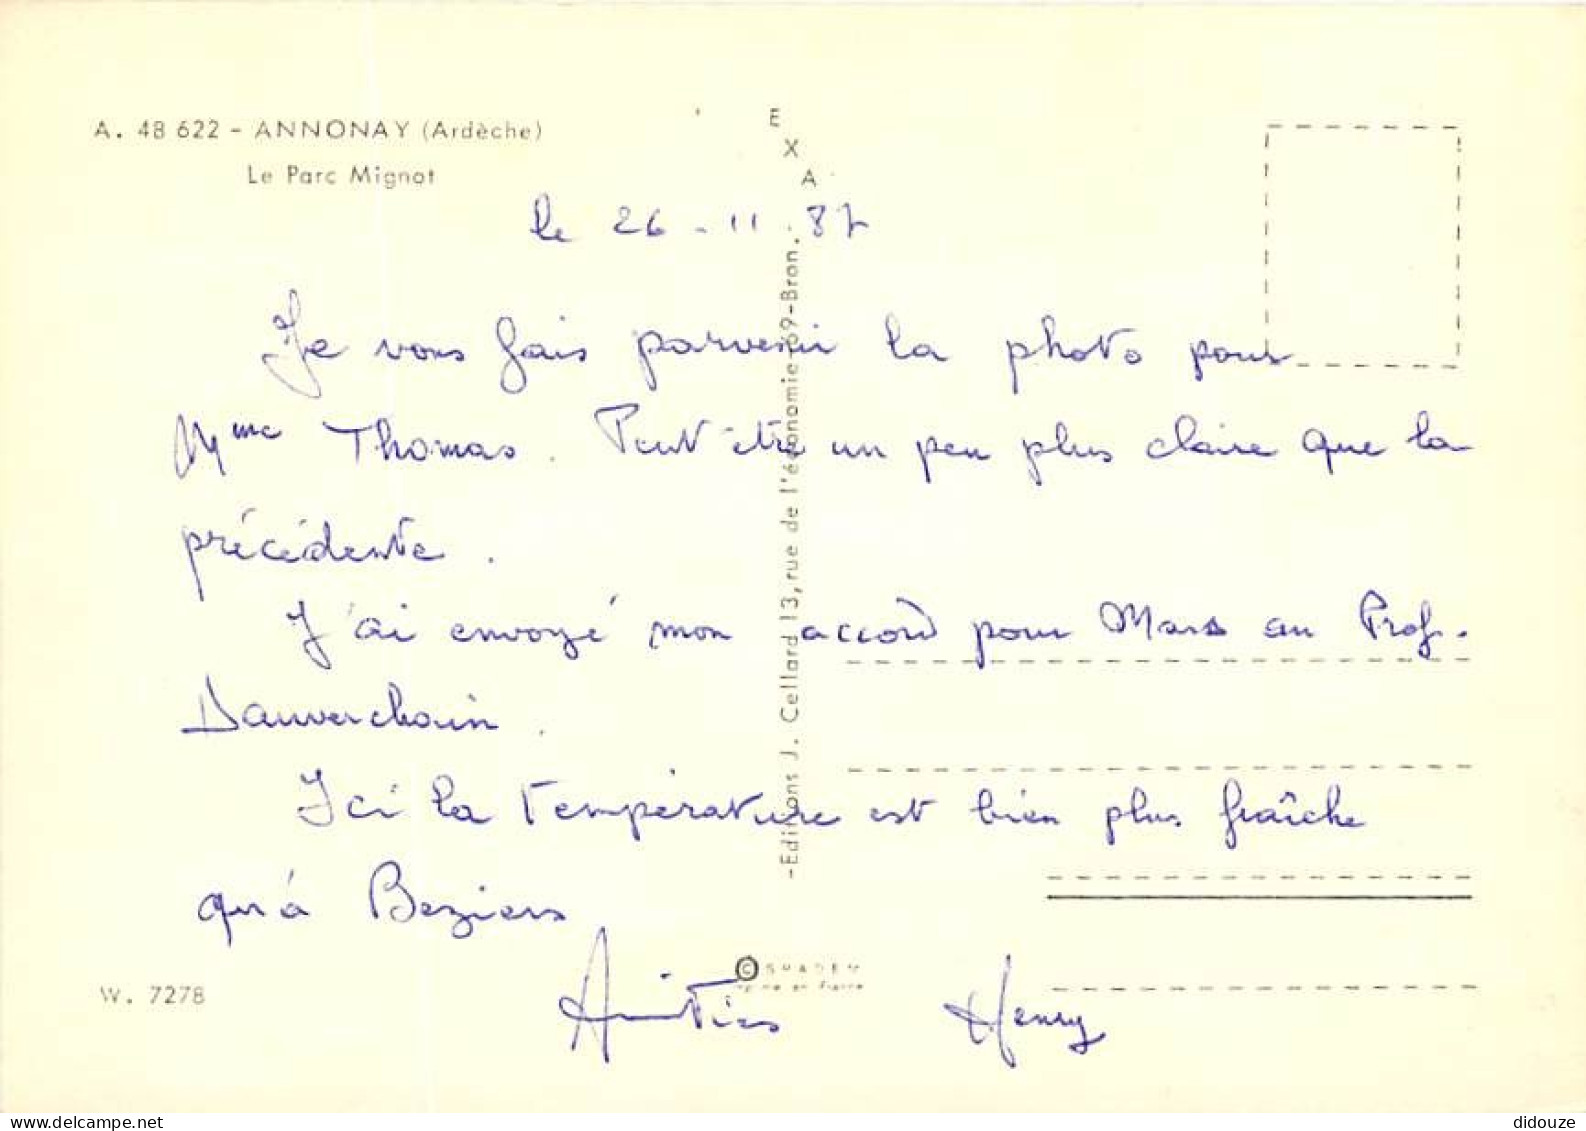 A. 48 622 - ANNONAY (Ardèche)
Le Parc Mignot
EXA
le 26 - 11 . 87
Je vous fais parvenir la photo pour
Mme Thomas. Peut être un peu plus claire que la
précédente.
J'ai envoyé mon accord pour Mars au Prof.
Dauverchain.
Ici la température est bien plus fraîche
qu'à Beziers
Amitiés Henry
-Editions J. Cellard 13, rue de l'économie 69-Bron.
© SPADEM
W. 7278
didouze
delcampe.net